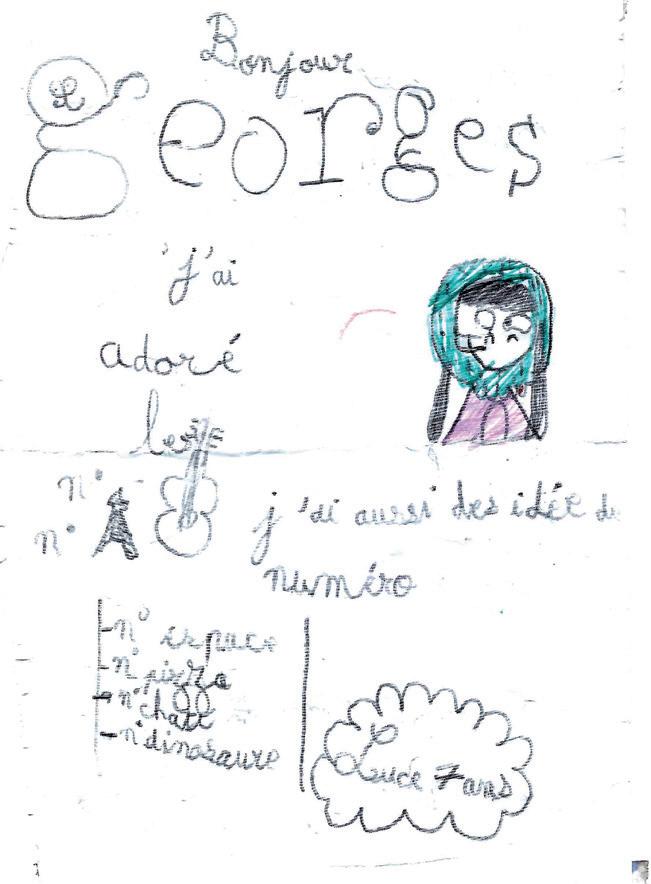 Bonjour
georges
j'ai
adoré
les
n°
n°
j'ai aussi des idée de
numéro
n° espace
n° pizza
n° chat
n° dinosaure
Lucie 7 ans